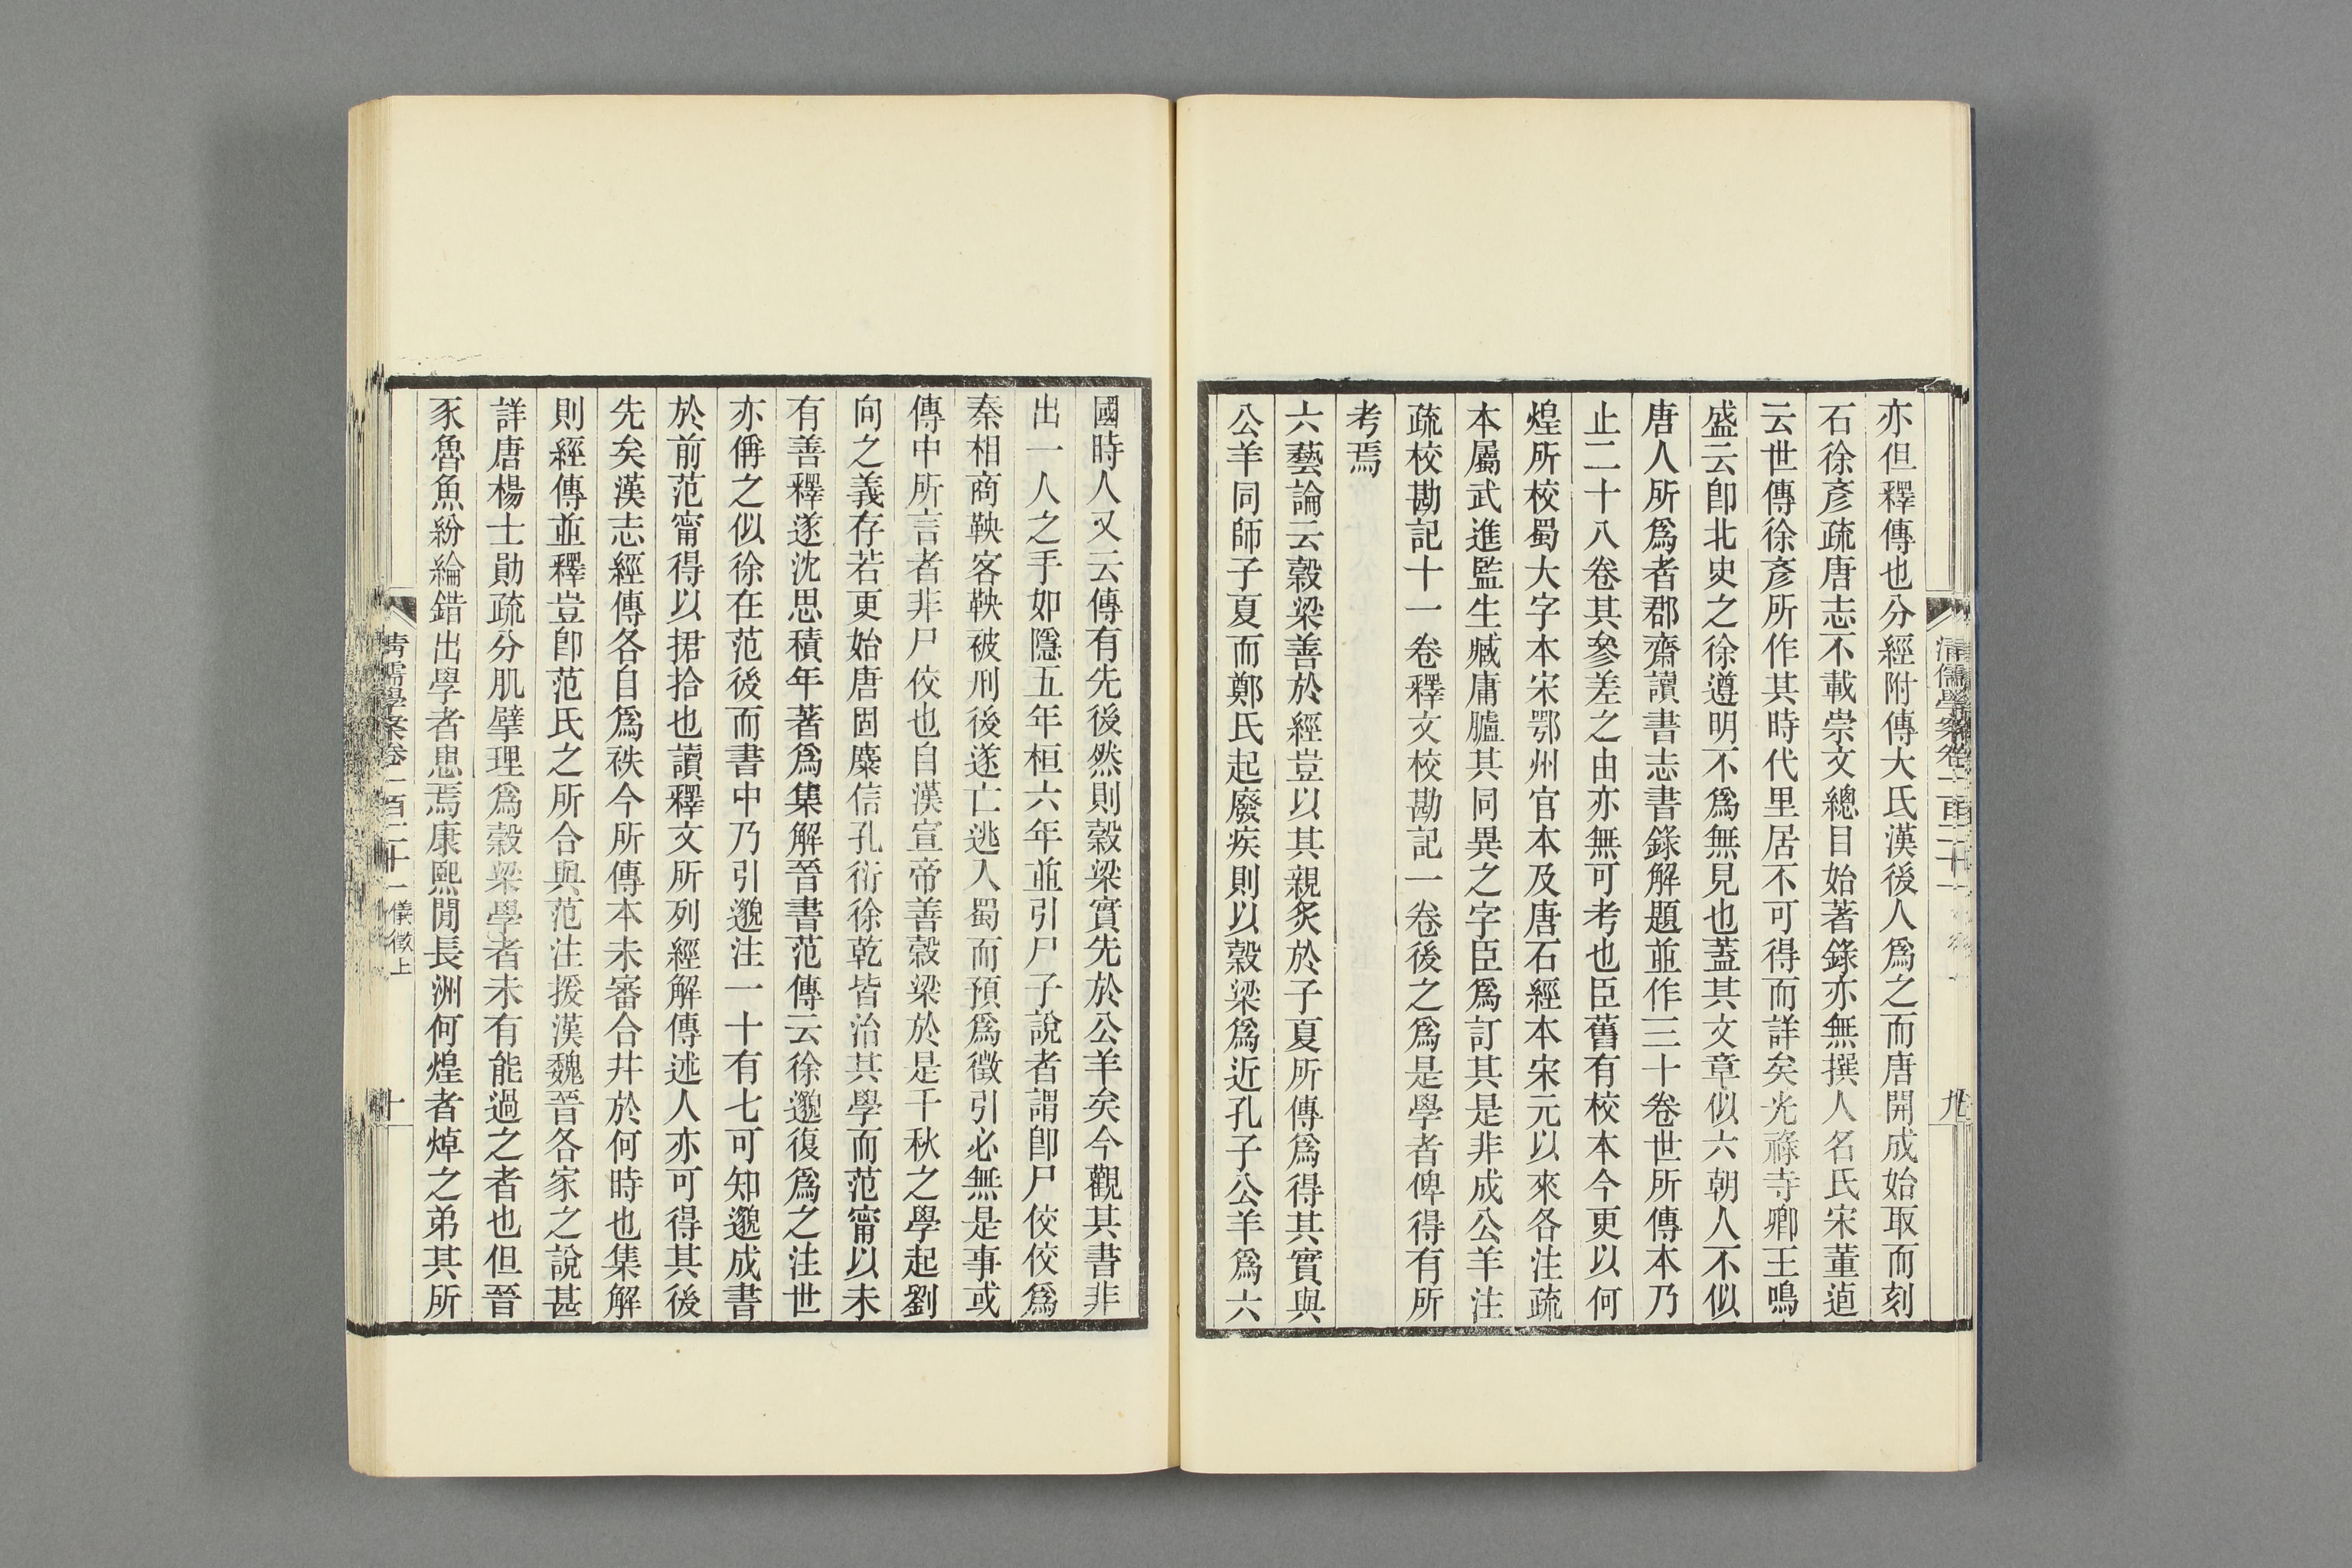 亦但釋傳也分經附傳大氐漢後人爲之而唐開成始取而刻
石徐彥疏唐志不載崇文總目始著錄亦無撰人名氏宋董逌
云世傳徐彥所作其時代里居不可得而詳矣光祿寺卿王鳴
盛云卽北史之徐遵明不爲無見也蓋其文章似六朝人不似
唐人所爲者郡齋讀書志書錄解題並作三十卷世所傳本乃
止二十八卷其參差之由亦無可考也臣舊有校本今更以何
煌所校蜀大字本宋鄂州官本及唐石經本宋元以來各注疏
本屬武進監生臧庸臚其同異之字臣爲訂其是非成公羊注
疏校勘記十一卷釋文校勘記一卷後之爲是學者俾得有所
考焉
六藝論云穀梁善於經豈以其親炙於子夏所傳爲得其實與
公羊同師子夏而鄭氏起廢疾則以穀梁爲近孔子公羊爲六
國時人又云傳有先後然則穀梁實先於公羊矣今觀其書非
出一人之手如隱五年桓六年並引尸子說者謂卽尸佼佼爲
秦相商鞅客鞅被刑後遂亡逃入蜀而預爲徵引必無是事或
傳中所言者非尸佼也自漢宣帝善穀梁於是千秋之學起劉
向之義存若更始唐固麋信孔衍徐乾皆治其學而范甯以未
有善釋遂沈思積年著爲集解晉書范傳云徐邈復爲之注世
亦偁之似徐在范後而書中乃引邈注一十有七可知邈成書
於前范甯得以捃拾也讀釋文所列經解傳述人亦可得其後
先矣漢志經傳各自爲袠今所傳本未審合幷於何時也集解
則經傳並釋豈卽范氏之所合與范注援漢魏晉各家之說甚
詳唐楊士勛疏分肌擘理爲穀梁學者未有能過之者也但晉
豕魯魚紛綸錯出學者患焉康熙閒長洲何煌者焯之弟其所
清儒學案卷一百二十一儀徵上
十